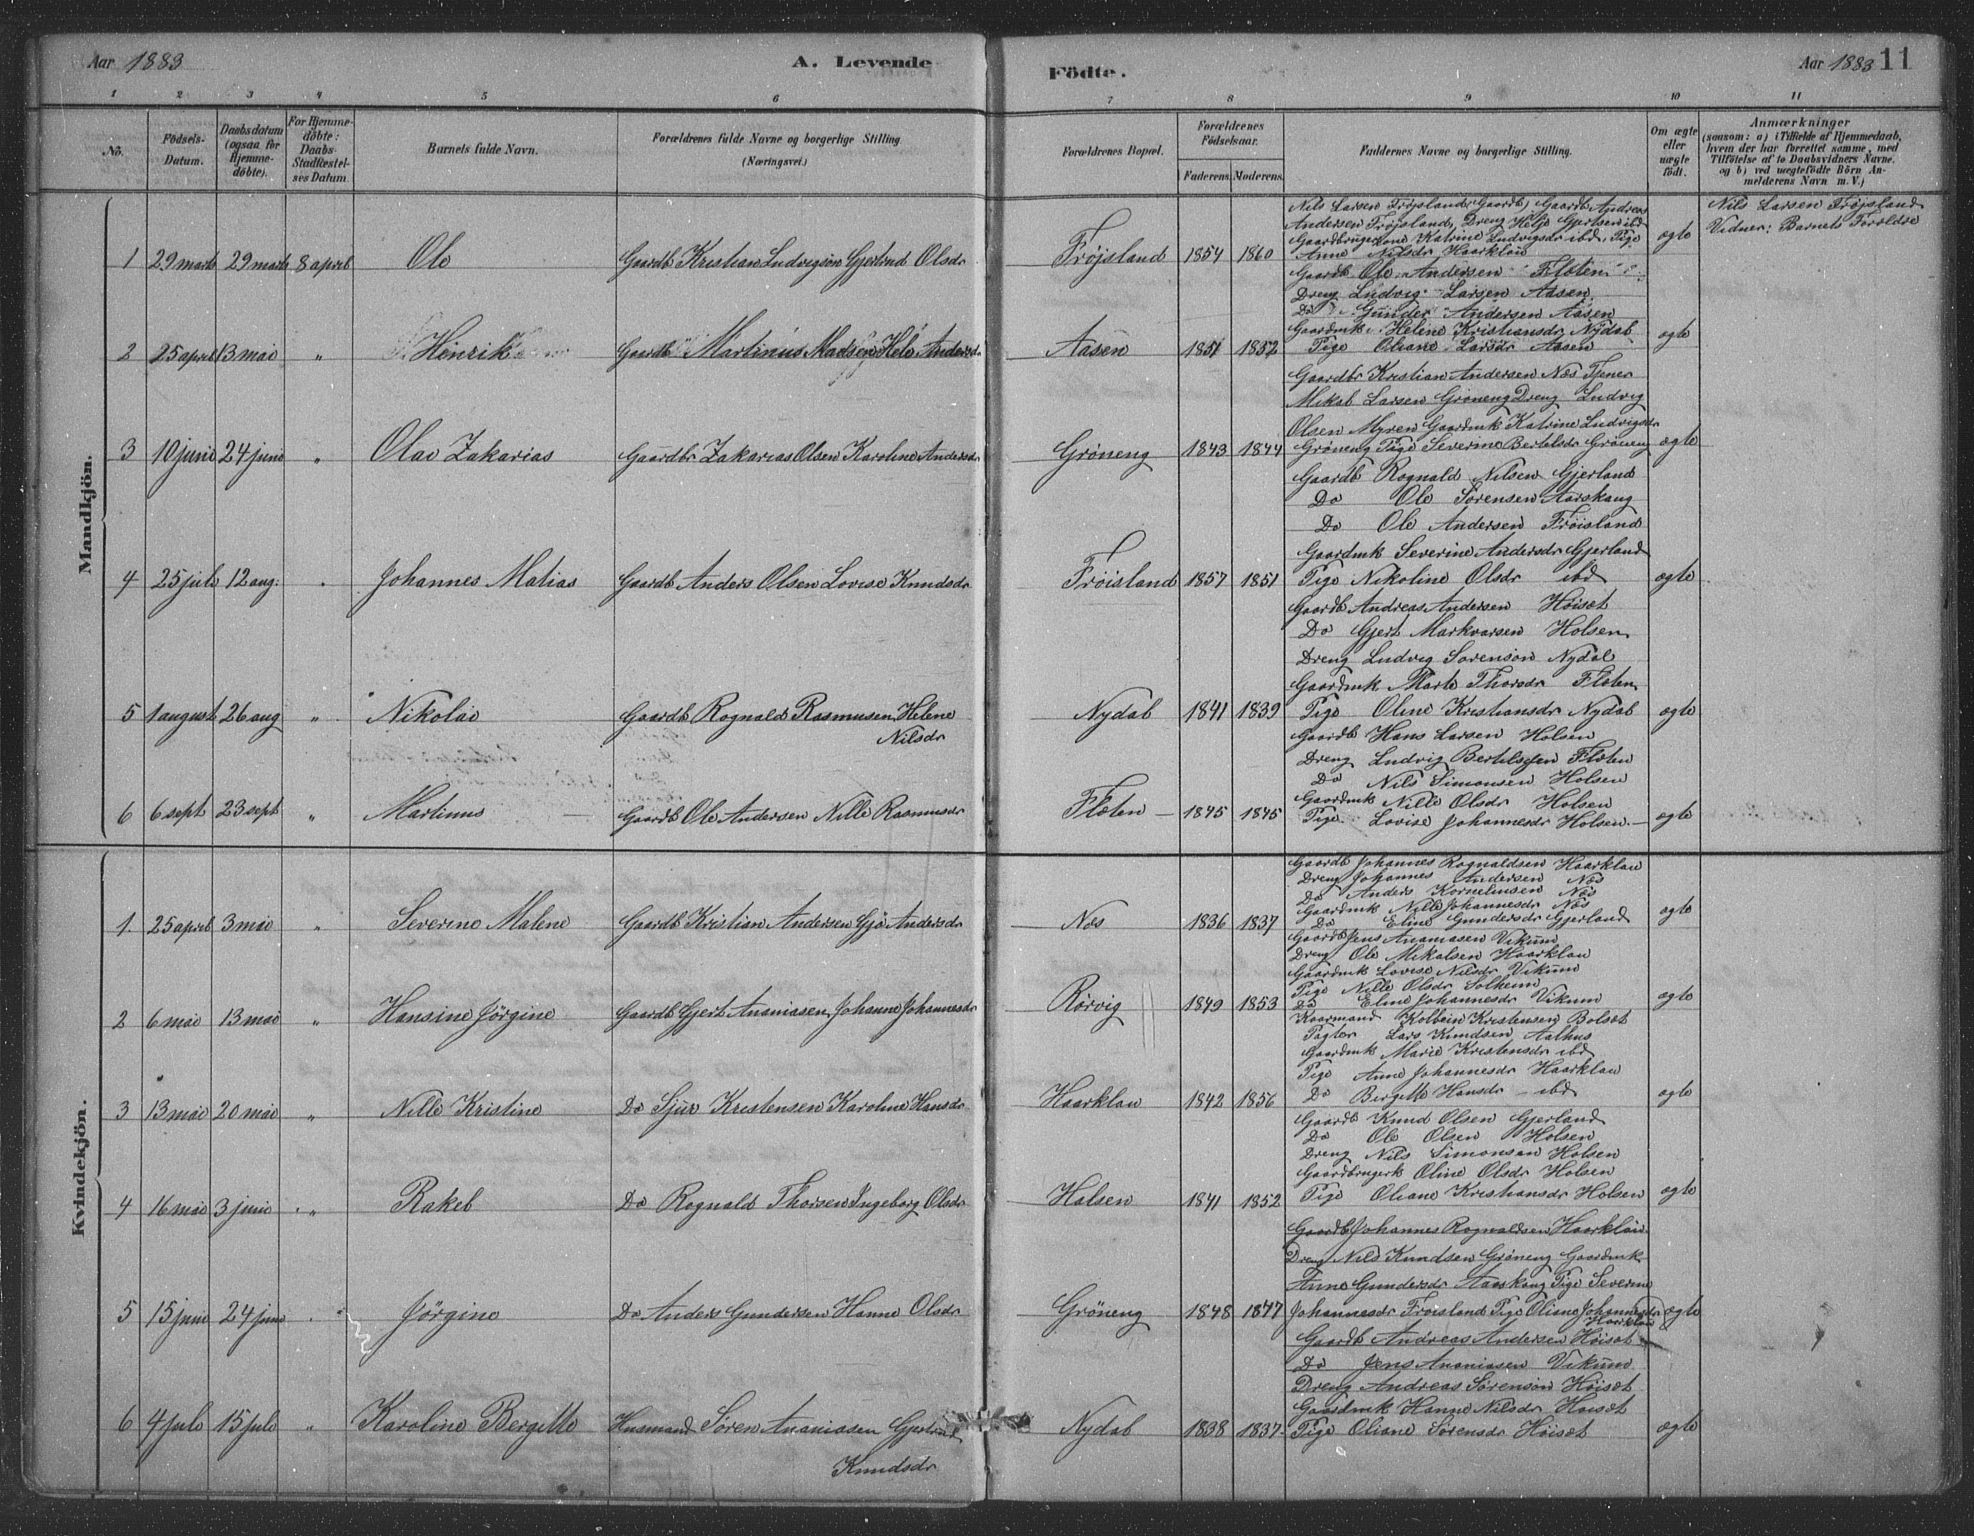 Aar 1883
A. Levende
Födte.
Aar 1883 11
1 2 3 4 5 6 7 8 9 10 11
No.
Födsels-
Datum.
Daabsdatum
(ogsaa for
Hjemme-
döbte).
For Hjemme-
döbte:
Daabs-
Stadfæstel-
ses Datum
Barnets fulde Navn.
Forældrenes fulde Navne og borgerlige Stilling
(Næringsvei.)
Forældrenes Bopæl.
Forældrenes
Födselsaar.
Faderens. Moderens.
Faddernes Navne og borgerlige Stilling.
Om ægte
eller
uægte
födt.
Anmærkninger
(saasom: a) i Tilfælde af Hjemmedaab,
hvem der har forrettet samme, med
Tilföielse af to Daabsvidners Navne.
og b) ved uægtefödte Börn An-
melderens Navn m. V.)
Mandkjön.
1 29 marts 29 marts 8 april Ole Gaardb Kristian Ludvigsen Gjertrud Olsdr Fröjsland 1854 1860 ægte
Nils Larsen Fröjsland, Gaardb, Gaardb Andreas
Andersen Fröjsland, Dreng Helje Gjertsen ibd
Gaardbrugerkone Katrine Ludvigsdr ibd, Pige
Anne Nilsdr Haarklau
Nils Larsen Fröjsland
Vidner: Barnets Foreldre
2 25 april 13 mai " Henrik Gaardb Martinus Madsen Hele Andersdr Aasen 1851 1852 ægte
Gaardb Ole Andersen Flöten
Dreng Ludvig Larsen Aasen
Do Gunder Andersen Aasen
Gaardmk Helene Kristiansdr Nydal
Pige Oliane Larsdr Aasen
3 10 juni 24 juni " Olai Zakarias Gaardbr Zakarias Olsen Karoline Andersdr Gröneng 1843 1844 ægte
Gaardbr Kristian Andersen Næs Tjener
Mikal Larsen Gröneng Dreng Ludvig
Olsen Myren Gaardmk Katrine Ludvigsdr
Gröneng Pige Severine Bertelsdr Gröneng
4 25 juli 12 aug. " Johannes Matias Gaardb Anders Olsen Lovise Knudsdr Fröisland 1857 1851 ægte
Gaardb Rognald Nilsen Gjerland
Do Ole Sörensen Aarskaug
Do Ole Andersen Fröisland
Gaardmk Severine Andersdr Gjerland
Pige Nikoline Olsdr ibd
5 1 august 26 aug " Nikolai Gaardb Rognald Rasmusen Helene
Nilsdr Nydal 1841 1839 ægte
Gaardb Andreas Andersen Höiset
Do Gjert Markvarsen Holsen
Dreng Ludvig Sorenson Nydal
Gaardmk Marte Thorsdr Flöten
Pige Oline Kristiansdr Nydal
6 6 sept 23 sept " Martinus Gaardb Ole Andersen Nille Rasmusdr Flöten 1845 1845 ægte
Gaardb Hans Larsen Holsen
Dreng Ludvig Bertelsen Flöten
Do Nils Simonsen Holsen
Gaardmk Nille Olsdr Holsen
Pige Lovise Johannesdr Holsen
Kvindekjön.
1 25 april 3 mai " Severine Malene Gaardb Kristian Andersen Gjö Andersdr Næs 1836 1837 ægte
Gaardb Johannes Rognaldsen Haarklau
Dreng Johannes Andersen Næs
Do Anders Kornelinsen Næs
Gaardmk Nille Johannesdr Næs
Do Eline Gundersdr Gjerland
2 6 mai 13 mai " Hansine Jörgine Gaardb Gjert Ananiasen Johanne Johannesdr Rörvig 1849 1853 ægte
Gaardb Jens Ananiasen Vikum
Dreng Ole Mikalsen Haarklau
Gaardmk Lovise Nilsdr Vikum
Pige Nille Olsdr Solheim
Do Eline Johannesdr Vikum
3 13 mai 20 mai " Nille Kristine Do Sjur Kristensen Karoline Hansdr Haarklau 1842 1856 ægte
Kaarmand Kolbein Kristensen Bolset
Pagter Lars Knudsen Aalhus
Gaardmk Marie Kristensdr ibd
Pige Anne Johannesdr Haarklau
Do Bergette Hansdr ibd
4 16 mai 3 juni " Rakel Do Rognald Thorsen Ingeborg Olsdr Holsen 1841 1852 ægte
Gaardb Knud Olsen Gjerland
Do Ole Olsen Holsen
Dreng Nils Simonsan Holsen
Gaardbrugerk Oline Olsdr Holsen
Pige Oliane Kristiansdr Holsen
5 15 juni 24 juni " Jörgine Do Anders Gundersen Hanne Olsdr Gröneng 1848 1847 ægte
Gaardb Johannes Rognaldsen Haarklau
Dreng Nils Knudsen Gröneng Gaardmk
Anne Gundersdr Aarskaug Pige Severine
Johannesdr Fröisland Pige Oliane Johannesdr
Haarklau
6 4 juli 15 juli " Karoline Bergette Husmand Sören Ananiasen Gjertrud
Knudsdr Nydal 1838 1837 ægte
Gaardb Andreas Andersen Höiset
Do Jens Ananiasen Vikum
Dreng Andreas Sörenson Höiset
Gaardmk Hanne Nilsdr Höiset
Pige Oliane Sörensdr Höiset